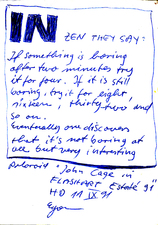 IN
ZEN THEY SAY:
If something is boring
after two minutes try
it for four. If it is still
boring, try it for eight,
sixteen, thirty-two and
so on.
Eventually one discovers
that it's not boring at
all but very interesting
"John Cage in
FLASHART Estate 91"
HD 11 IX 91